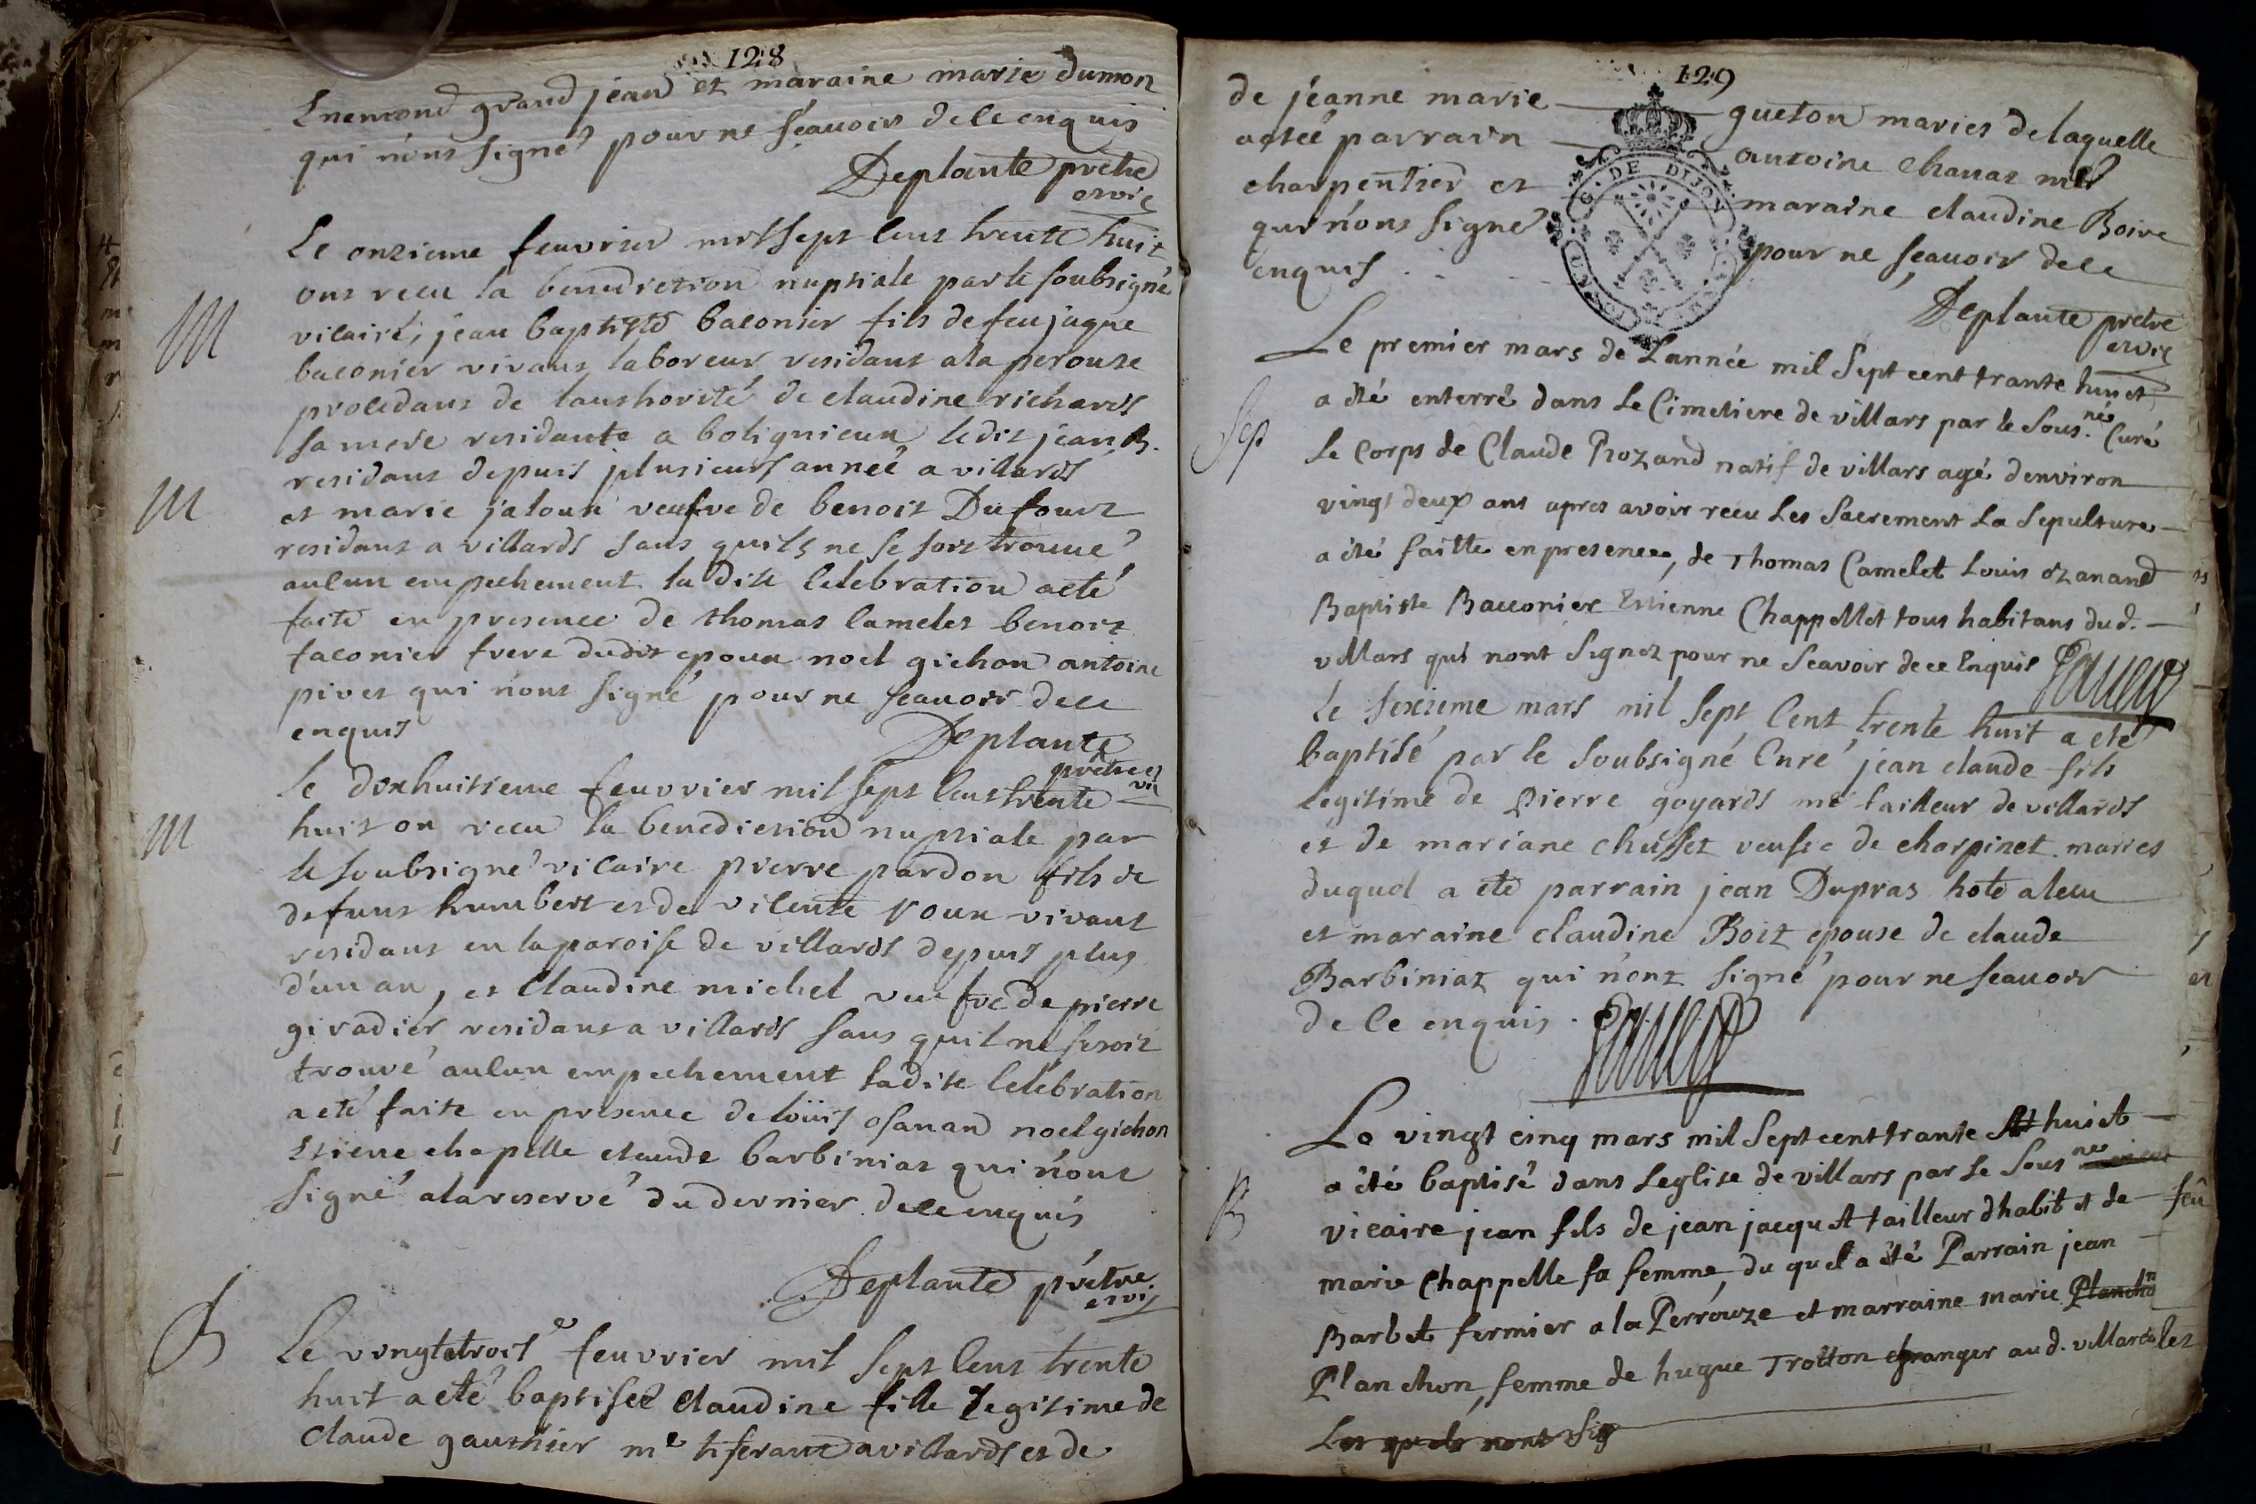 128
Enemond grand jean et maraine marie dumon
qui n'ont signé pour ne sçauoir de ce enquis
Deplante prètre
et vic
Le onzieme feuvrier mil sept cent trente huit
ont recu la benediction nuptiale par le soubsigné
vicaire, jean baptiste baconier fils de feu jaque
baconier vivant laboreur residant a la perouze
procedant de l'authorité de claudine richard
sa mere residante a bolignieux ledit jean B.
residant depuis plusieurs anneé a villards
et marie jaloux veufve de benoit Dufour
residant a villards sans quils ne se soit trouué
aucun empechement la dite celebration a eté
faite en presence de thomas camelet benoit
baconier frere dudit epoux noel gichon antoine
pivet qui n'ont signé pour ne sçauoir de ce
enquis
Deplante
prètre et
vic
M
M
M
le dixhuitieme feuvrier mil sept cent trente
huit on recu la benediction nuptiale par
le soubsigné vicaire pierre pardon fils de
defunt humbert et de vicente roux vivant
residant en la paroise de villards depuis plus
d'un an, et Claudine michel veufve de pierre
giradier residant a villards sans quil ne se soit
trouvé aucun empechement ladite celebration
a eté faite en presence de loüis osanan noel gichon
Etiene chapelle claude barbiniat qui n'ont
signé a la reserve du dernier de ce enquis
Deplante prètre
et vic
B
Le vingtetrois e feuvrier mil sept cent trente
huit a eté baptiseé Claudine fille legitime de
Claude gauthier me tiserant a villards et de
129
de jeanne marie gueton mariés de laquelle
a eteé parrain antoine chanat me
charpentier et maraine claudine Boire
qui n'ons signé pour ne sçauoir de ce
enquis
G. DE DIJON
Deplante prètre
et vic
Sep
Le premier mars de L'année mil Sept cent trante huict
a été enterré dans Le Cimetiere de villars par le Sous.né Curé
Le Corps de Claude Prozand natif de villars agé denviron
vingt deux ans apres avoir recu Les Sacrement La Sepulture
a été faitte en presence, de Thomas Camelet Louis ozanand
Baptiste Bacconier Estienne Chappellet tous habitans dud.
villars qui nont Signez pour ne Scavoir de ce Enquis
le sezieme mars mil sept cent trente huit a eté
baptisé par le soubsigné Curé jean claude fils
legitime de pierre goyard me tailleur de villards
et de mariane chusset veufve de charpinet mariés
duquel a eté parrain jean Dupras hote a lecu
et maraine claudine Boit epouse de claude
Barbiniat qui n'ont signé pour ne sçauoir
de ce enquis.
B
Le vingt cinq mars mil Sept cent trante huict
a été baptisé dans Leglise de villars par Le Sous né
vicaire jean fils de jean jacquet tailleur dhabit et de feû
marie Chappelle sa femme, du quel a été Parrain jean
Barbet fermier a la Perrouze et marraine marie Planchon
Planchon, femme de hugue Trotton granger aud. villard les
Les quels nont sig